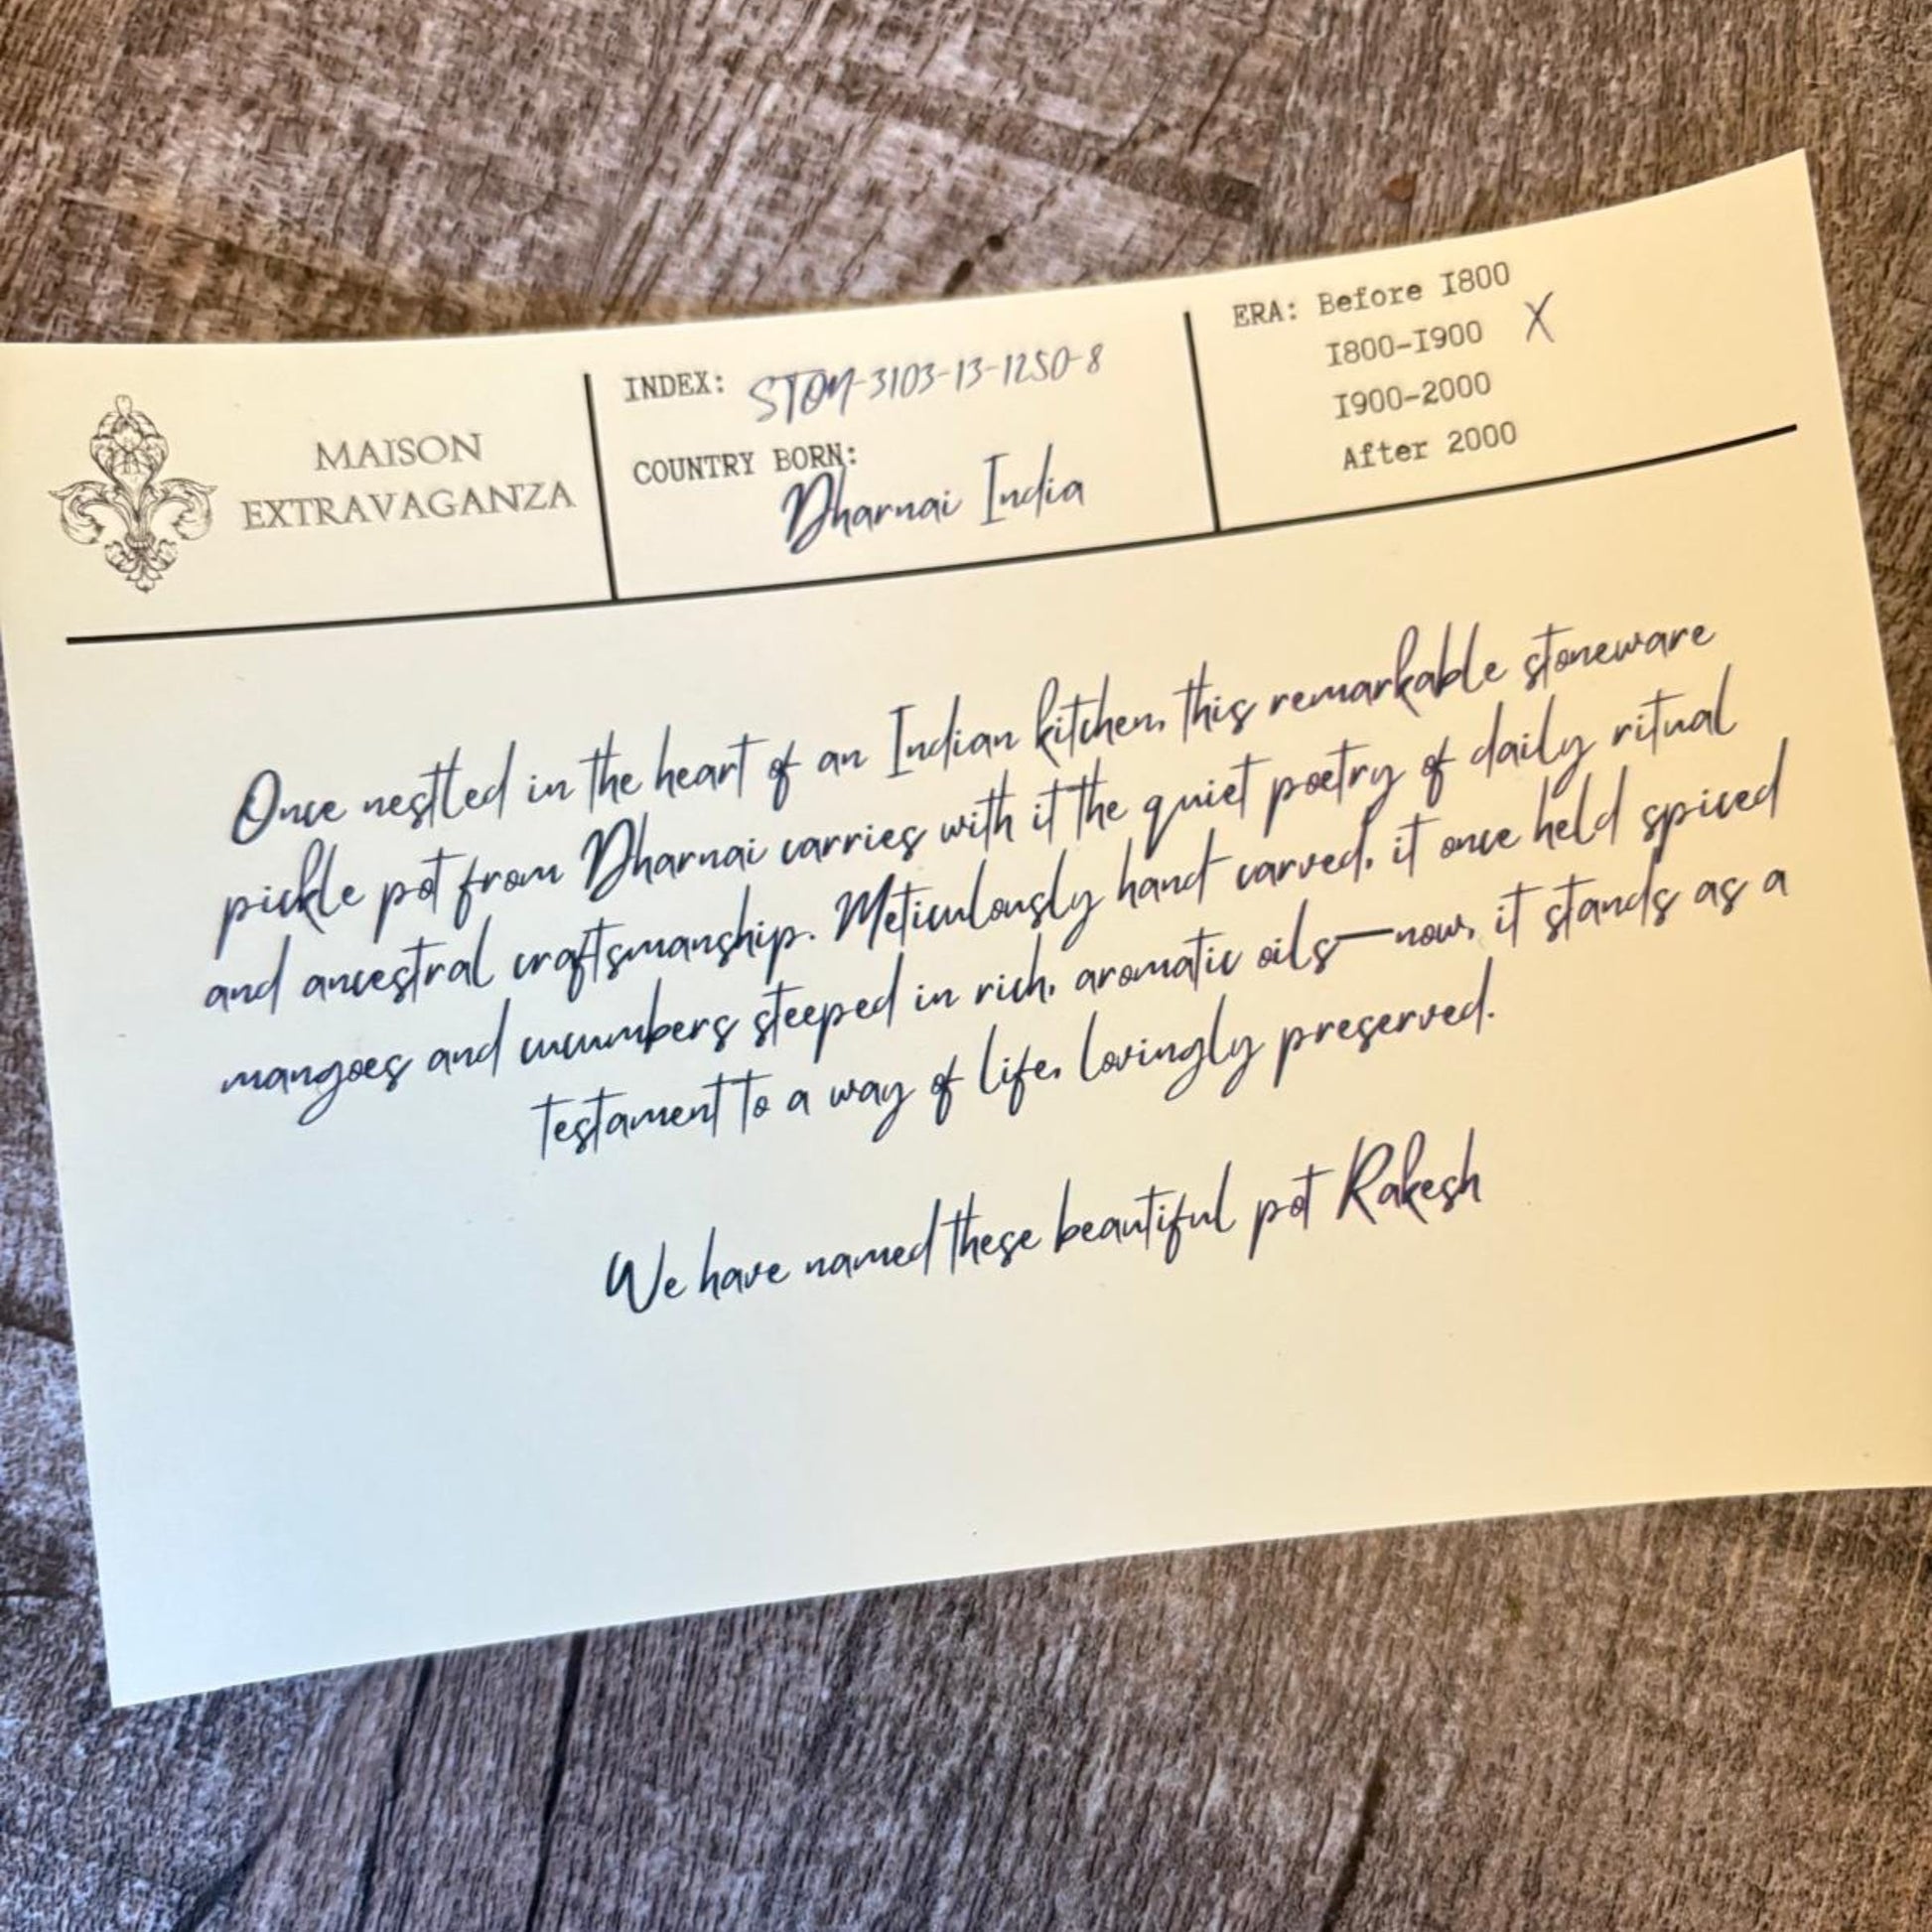 MAISON
EXTRAVAGANZA
INDEX: STOM-3103-13-1250-8
COUNTRY BORN:
Dharnai India
ERA: Before I800
I800-I900 X
I900-2000
After 2000
Once nestled in the heart of an Indian kitchen, this remarkable stoneware
pickle pot from Dharnai carries with it the quiet poetry of daily ritual
and ancestral craftsmanship. Meticulously hand carved, it once held spiced
mangoes and cucumbers steeped in rich, aromatic oils—now, it stands as a
testament to a way of life, lovingly preserved.
We have named these beautiful pot Rakesh